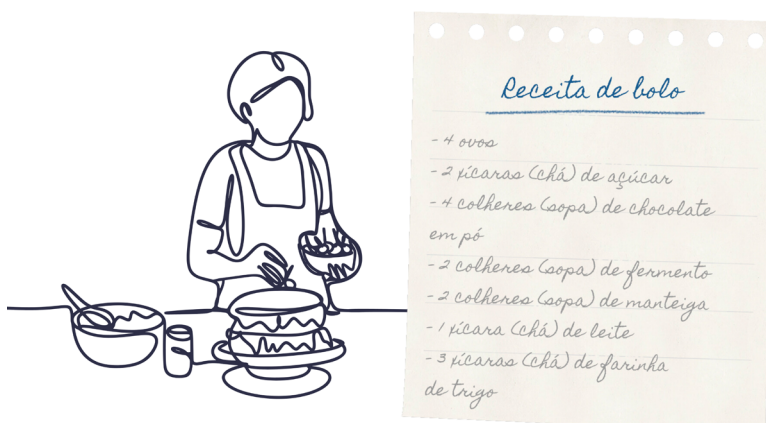 Receita de bolo
- 4 ovos
- 2 xícaras (chá) de açúcar
- 4 colheres (sopa) de chocolate
em pó
- 2 colheres (sopa) de fermento
- 2 colheres (sopa) de manteiga
- 1 xícara (chá) de leite
- 3 xícaras (chá) de farinha
de trigo